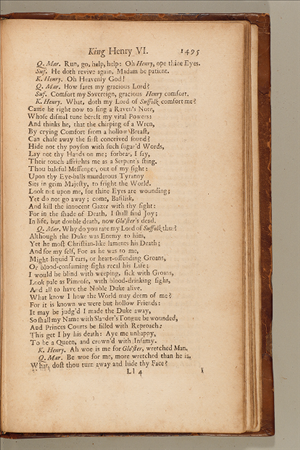 King Henry VI. 1495
Q. Mar. Run, go, help, help: Oh Henry, ope thine Eyes.
Suf. He doth revive again. Madam be patient.
K. Henry. Oh Heavenly God!
Q. Mar. How fares my gracious Lord?
Suf. Comfort my Soveraign, gracious Henry comfort.
K. Henry. What, doth my Lord of Suffolk comfort me?
Came he right now to sing a Raven's Note,
Whose dismal tune bereft my vital Powers
And thinks he, that the chirping of a Wren,
By crying Comfort from a hollow Breast,
Can chase away the first conceived sound?
Hide not thy poyson with such sugar'd Words,
Lay not thy Hands on me; forbear, I say,
Their touch affrights me as a Serpent's sting.
Thou baleful Messinger, out of my sight:
Upon thy Eye-balls murderous Tyranny
Sits in grim Majesty, to fright the World.
Look not upon me, for thine Eyes are wounding;
Yet do not go away; come, Basilisk,
And kill the innocent Gazer with thy sight:
For in the shade of Death, I shall find Joy;
In life, but double death, now Glo'ster's dead.
Q. Mar. Why do you rate my Lord of Suffolk thus?
Although the Duke was Enemy to him,
Yet he most Christian-like laments his Death;
And for my self, Foe as he was to me,
Might liquid Tears, or heart-offending Groans,
Or blood-consuming sighs recal his Life;
I would be blind with weeping, sick with Groans,
Look pale as Primrose, with blood-drinking sighs,
And all to have the Noble Duke alive.
What know I how the World may deem of me?
For it is known we were but hollow Friends:
It may be judg'd I made the Duke away,
So shall my Name with Slander's Tongue be wounded,
And Princes Courts be filled with Reproach:
This get I by his death: Aye me unhappy,
To be a Queen, and crown'd with Infamy.
K. Henry. Ah woe is me for Glo'ster, wretched Man.
Q. Mar. Be woe for me, more wretched than he is.
What, dost thou turn away and hide thy Face?
Ll 4 I